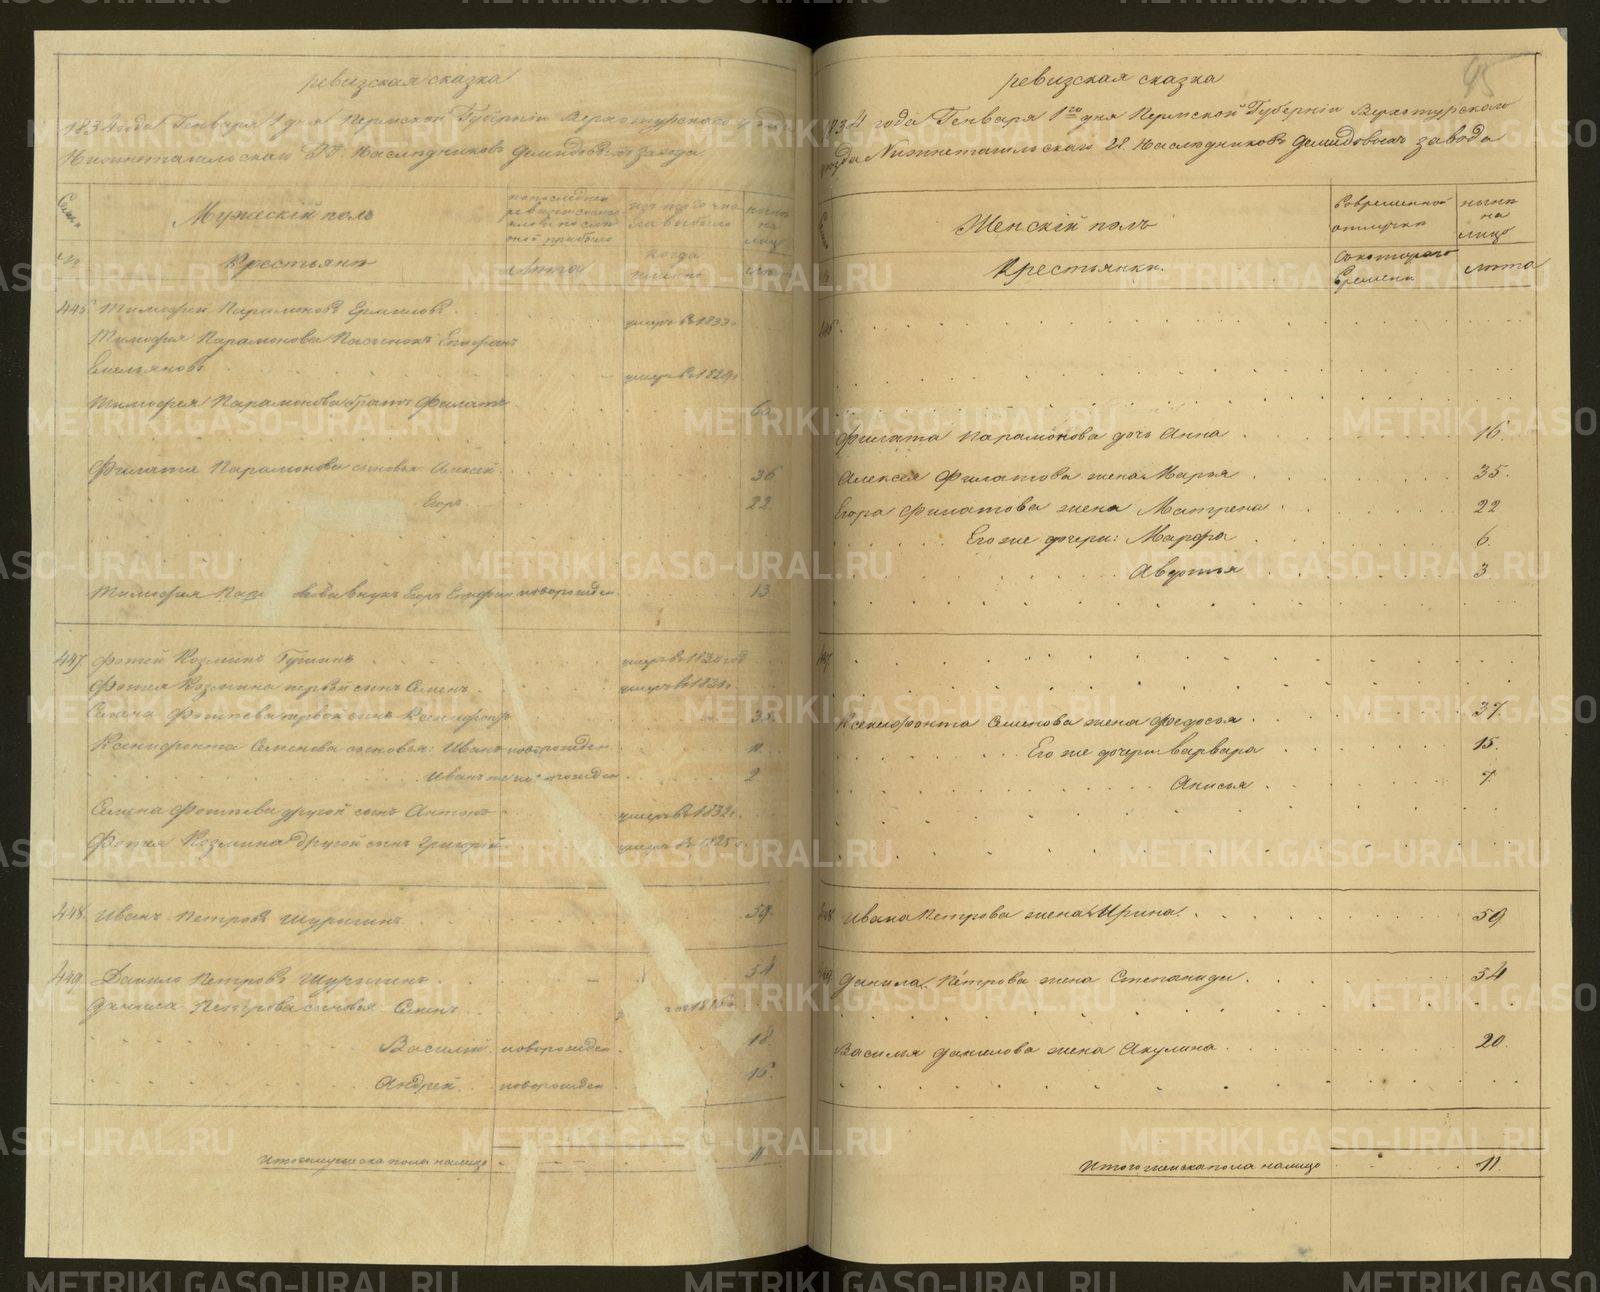 ревизская сказка
1834 года Генваря 1 дня Пермской Губернiи Верхотурского уезда
Нижнетагильскаго Наследниковъ Демидовыхъ завода
Мужескiй полъ
изъ того числа выбыло
ныне на лицо
Крестьяне
лета
когда именно
лета
445 Тимофей Парамоновъ Ермиловъ умеръ въ 1833
Тимофея Парамонова Пасынокъ Епифанъ
Емельяновъ умеръ въ 1824
Тимофея Парамонова братъ Филатъ
Филата Парамонова сыновья Алексей 36
Егоръ 22
Тимофея внукъ Егоръ новорожден 13
447 Фотей Козминъ умеръ въ 1830 год
Фотея Козмина первый сынъ Семенъ умеръ въ
Семена Фотеева первой сынъ Ксенофонтъ
Ксенифонта Семенова сыновья: Иванъ новорожден 11
Иванъ же новорожден 2
Семена Фотеева другой сынъ Антонъ умеръ въ 1832
Фотея Козмина другой сынъ Григорiй умеръ въ 1825
448 Иванъ Петровъ Шурыгинъ 59
449 Данило Петровъ Шурыгинъ 54
Данила Петрова сыновья Семенъ
Василiй новорожден 18
Андрей новорожден 15
Итого мужеска пола налицо 11
95
ревизская сказка
1834 года Генваря 1го дня Пермской Губернiи Верхотурского
уезда Нижнетагильскаго Наследниковъ Демидовыхъ завода
Женскiй полъ
Во временной отлучке
ныне на лицо
Крестьянки.
Съ котораго времени
лета
Филата Парамонова дочь Анна 16
Алексея Филатова жена Марья 35.
Егора Филатова жена Матрена 22
Его же дочери: Марфа 6.
Авдотья 3
447
Ксенофонта Семенова жена Федосья 37.
Его же дочери Варвара 15.
Анисья 7.
448 Ивана Петрова жена Ирина. 59
449 Данила Петрова жена Степанида. 54
Василья Данилова жена Акулина 20.
Итого женска пола налицо 11.
METRIKI.GASO-URAL.RU